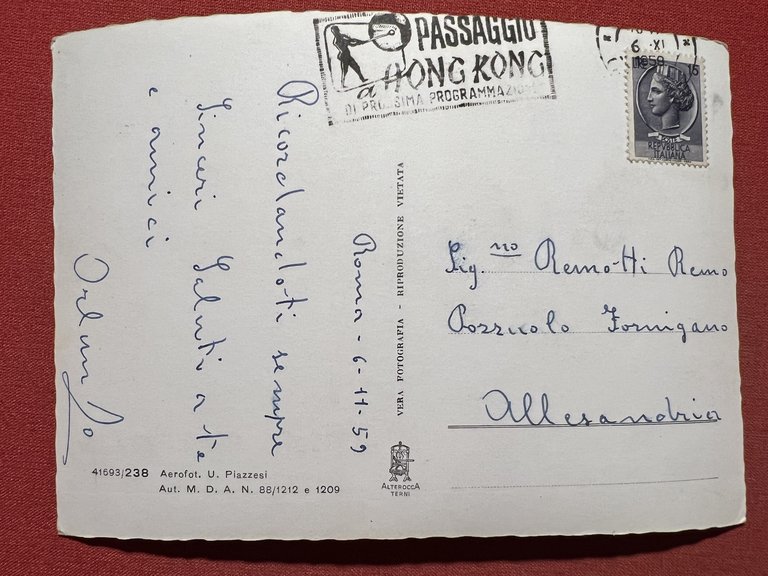 PASSAGGIO
a HONG KONG
DI PROSSIMA PROGRAMMAZIONE
6 XI
1959
15
POSTE
REPVBBLICA
ITALIANA
Roma - 6-11-59
Ricordandoti sempre
Sinceri Saluti a te
e amici
Orlando
VERA FOTOGRAFIA - RIPRODUZIONE VIETATA
Sig.no Remotti Remo
Pozzuolo Formigano
Allesandria
41693/238 Aerofot. U. Piazzesi
Aut. M. D. A. N. 88/1212 e 1209
ALTEROCCA
TERNI